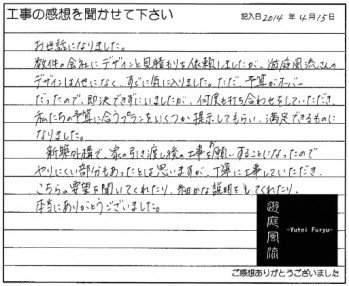 工事の感想を聞かせて下さい
記入日2014年4月15日
お世話になりました。
数件の会社にデザインと見積もりを依頼しましたが、遊庭風流さんの
デザインは他になく、すぐに気に入りました。ただ、予算がオーバー
だったので、即決できずにいましたが、何度も打ち合わせをしていただき、
私たちの予算に合うプランをいくつか提示してもらい、満足できるものに
なりました。
新築外構で、家の引き渡し後の工事をお願いすることになったので
やりにくい部分もあったとは思いますが、丁寧に工事していただき、
こちらの要望を聞いてくれたり、細かな説明をしてくれたり、
本当にありがとうございました。
遊庭風流
-Yutei Furyu-
ご感想ありがとうございました